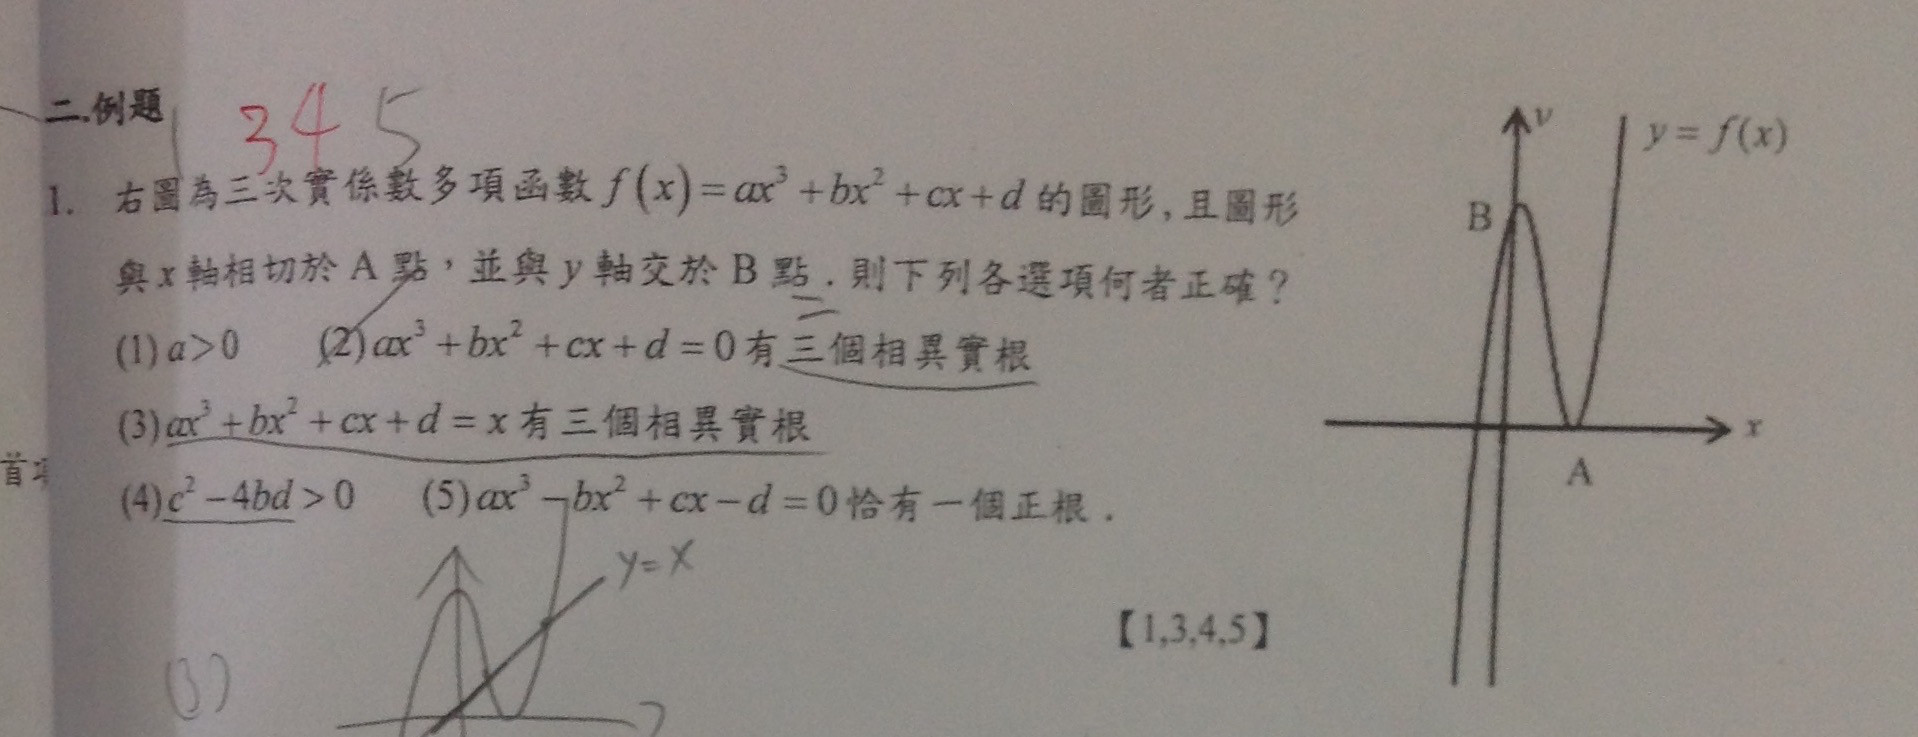 二.例題
1 3 4 5
1. 右圖為三次實係數多項函數 f(x)=ax³+bx²+cx+d 的圖形,且圖形
與 x 軸相切於 A 點,並與 y 軸交於 B 點.則下列各選項何者正確?
(1) a>0 (2) ax³+bx²+cx+d=0 有三個相異實根
(3) ax³+bx²+cx+d=x 有三個相異實根
(4) c²-4bd>0 (5) ax³-bx²+cx-d=0 恰有一個正根.
【1,3,4,5】
y
y=f(x)
B
x
A
首項
y=x
(3)